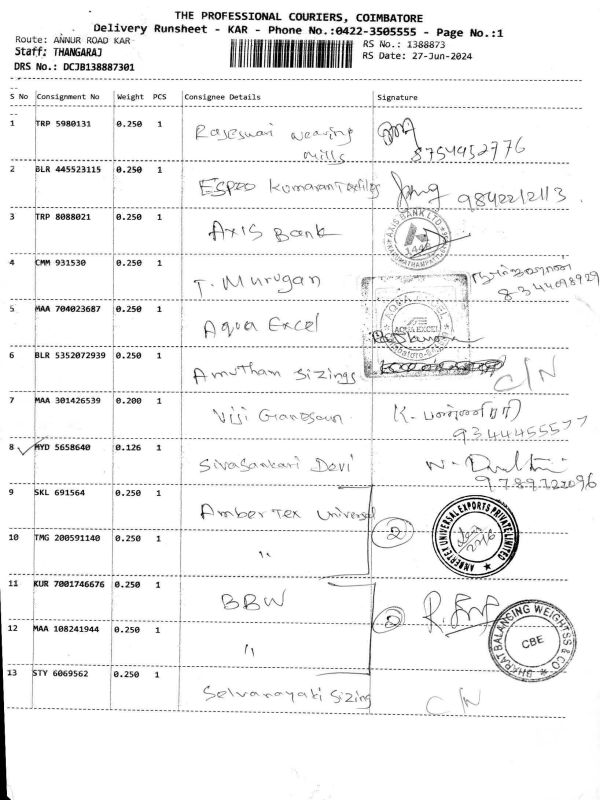 THE PROFESSIONAL COURIERS, COIMBATORE
Delivery Runsheet - KAR - Phone No.:0422-3505555 - Page No.:1
Route: ANNUR ROAD KAR
RS No.: 1388873
Staff: THANGARAJ
RS Date: 27-Jun-2024
DRS No.: DCJB138887301
S No Consignment No Weight PCS Consignee Details Signature
1 TRP 5980131 0.250 1 Rajeswari weaving
mills 8754952776
2 BLR 445523115 0.250 1 ESPEO Kumaran Textiles 9842212113
3 TRP 8088021 0.250 1 AXIS Bank
AXIS BANK LTD
4 CMM 931530 0.250 1 T. Murugan
8344098929
5 MAA 704023687 0.250 1 Aqua Excel
AQUA EXCEL
6 BLR 5352072939 0.250 1 Amutham Sizings C/N
7 MAA 301426539 0.200 1 Viji Ganesan K.
9344455577
8 MYD 5658640 0.126 1 Sivasankari Devi N.
9789722096
9 SKL 691564 0.250 1 Amber Tex Universal 2
AMBERTEX UNIVERSAL EXPORTS PRIVATE LIMITED
10 TMG 200591140 0.250 1 "
11 KUR 7001746676 0.250 1 BBW 2 R.
BHARAT BALANCING WEIGHTSS & CO
CBE
12 MAA 108241944 0.250 1 "
13 STY 6069562 0.250 1 Selvanayaki Sizing C/N